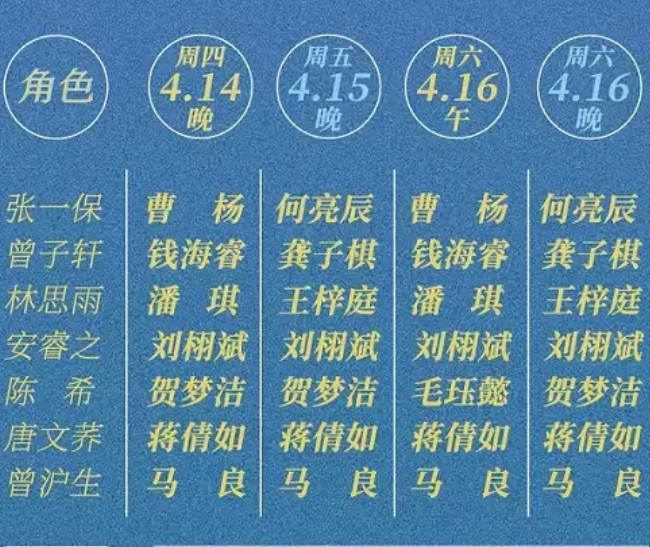 角色 周四 4.14 晚 周五 4.15 晚 周六 4.16 午 周六 4.16 晚
张一保 曹杨 何亮辰 曹杨 何亮辰
曾子轩 钱海睿 龚子棋 钱海睿 龚子棋
林思雨 潘琪 王梓庭 潘琪 王梓庭
安睿之 刘栩斌 刘栩斌 刘栩斌 刘栩斌
陈希 贺梦洁 贺梦洁 毛珏懿 贺梦洁
唐文荞 蒋倩如 蒋倩如 蒋倩如 蒋倩如
曾沪生 马良 马良 马良 马良